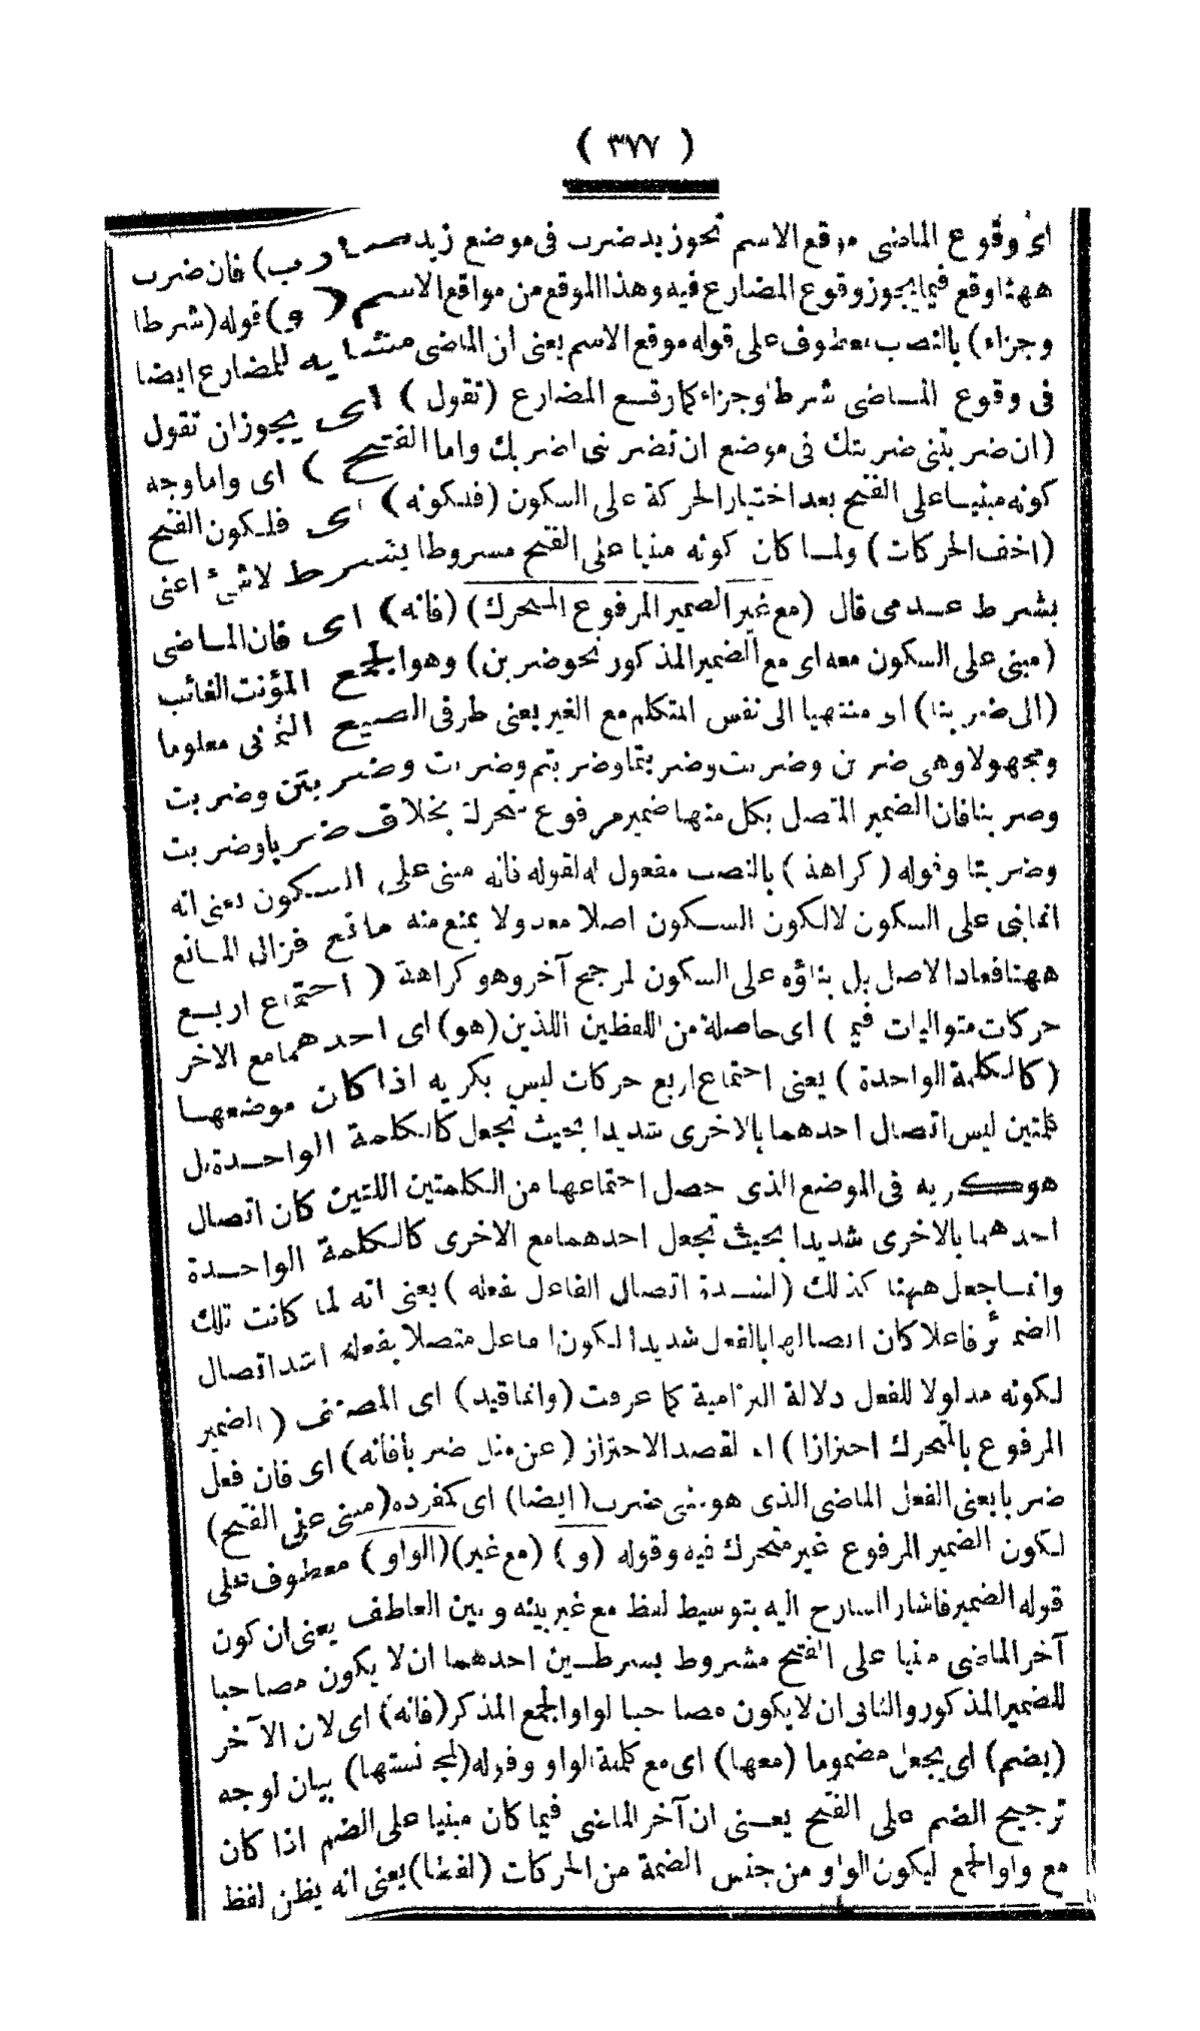 ( ٣٧٧ )
اى وقوع الماضى موقع الاسم نحو زيد ضرب فى موضع زيد ضارب) فان ضرب
ههنا وقع فيما يجوز وقوع المضارع فيه وهذا الموقع من مواقع الاسم (و) قوله (شرطا
وجزاء) بالنصب معطوف على قوله موقع الاسم يعنى ان الماضى مشابه للمضارع ايضا
فى وقوع الماضى شرطا وجزاء كما وقع المضارع (تقول) اى يجوز ان تقول
(ان ضربتنى ضربتك فى موضع ان تضربنى اضربك واما الفتح) اى واما وجه
كونه مبنيا على الفتح بعد اختيار الحركة على السكون (فلكونه) اى فلكون الفتح
(اخف الحركات) ولما كان كونه مبنيا على الفتح مشروطا بشرط لاشئ اعنى
بشرط عدمى قال (مع غير الضمير المرفوع المتحرك) (فانه) اى فان الماضى
(مبنى على السكون معه اى مع الضمير المذكور نحو ضربن) وهو الجمع المؤنث الغائب
(الى ضربنا) اى منتهيا الى نفس المتكلم مع الغير يعنى طرفى الصيغ معلوما
ومجهولا وهى ضربن وضربت وضربتما وضربتم وضربت وضربتن وضربت
وضربنا فان الضمير المتصل بكل منها ضمير مرفوع متحرك بخلاف ضربا وضربت
وضربتا وقوله (كراهة) بالنصب مفعول له لقوله فانه مبنى على السكون يعنى انه
انما بنى على السكون لا لكون السكون اصلا معدولا يمنع منه مانع فزال المانع
ههنا فعاد الاصل بل بناؤه على السكون لمرجح آخر وهو كراهة (اجتماع اربع
حركات متواليات فيما) اى حاصلة من اللفظين اللذين (هو) اى احدهما مع الاخر
(كالكلمة الواحدة) يعنى اجتماع اربع حركات ليس بكريه اذا كان موضعها
كلمتين ليس اتصال احدهما بالاخرى شديدا بحيث تجعل كالكلمة الواحدة بل
هو كريه فى الموضع الذى حصل اجتماعها من الكلمتين اللتين كان اتصال
احدهما بالاخرى شديدا بحيث تجعل احدهما مع الاخرى كالكلمة الواحدة
وانما جعل ههنا كذلك (لشدة اتصال الفاعل بفعله) يعنى انه لما كانت تلك
الضمائر فاعلا كان اتصالها بالفعل شديدا لكون الفاعل متصلا بفعله اشد اتصال
لكونه مدلولا للفعل دلالة التزامية كما عرفت (وانما قيد) اى المصنف (الضمير
المرفوع بالمتحرك احترازا) اى لقصد الاحتراز (عن مثل ضربا فانه) اى فان فعل
ضربا يعنى الفعل الماضى الذى هو مثنى ضرب (ايضا) اى كمفرده (مبنى على الفتح)
لكون الضمير المرفوع غير متحرك فيه وقوله (و) (مع غير) (الواو) معطوف على
قوله الضمير فاشار الشارح اليه بتوسيط لفظ مع غير بينه وبين العاطف يعنى ان كون
آخر الماضى مبنيا على الفتح مشروط بشرطين احدهما ان لا يكون مصاحبا
للضمير المذكور والثانى ان لا يكون مصاحبا لواو الجمع المذكر (فانه) اى لان الآخر
(يضم) اى يجعل مضموما (معها) اى مع كلمة الواو وقوله (لمجانستها) بيان لوجه
ترجيح الضم على الفتح يعنى ان آخر الماضى فيما كان مبنيا على الضم اذا كان
مع واو الجمع ليكون الواو من جنس الضمة من الحركات (لفظا) يعنى انه يظن لفظ